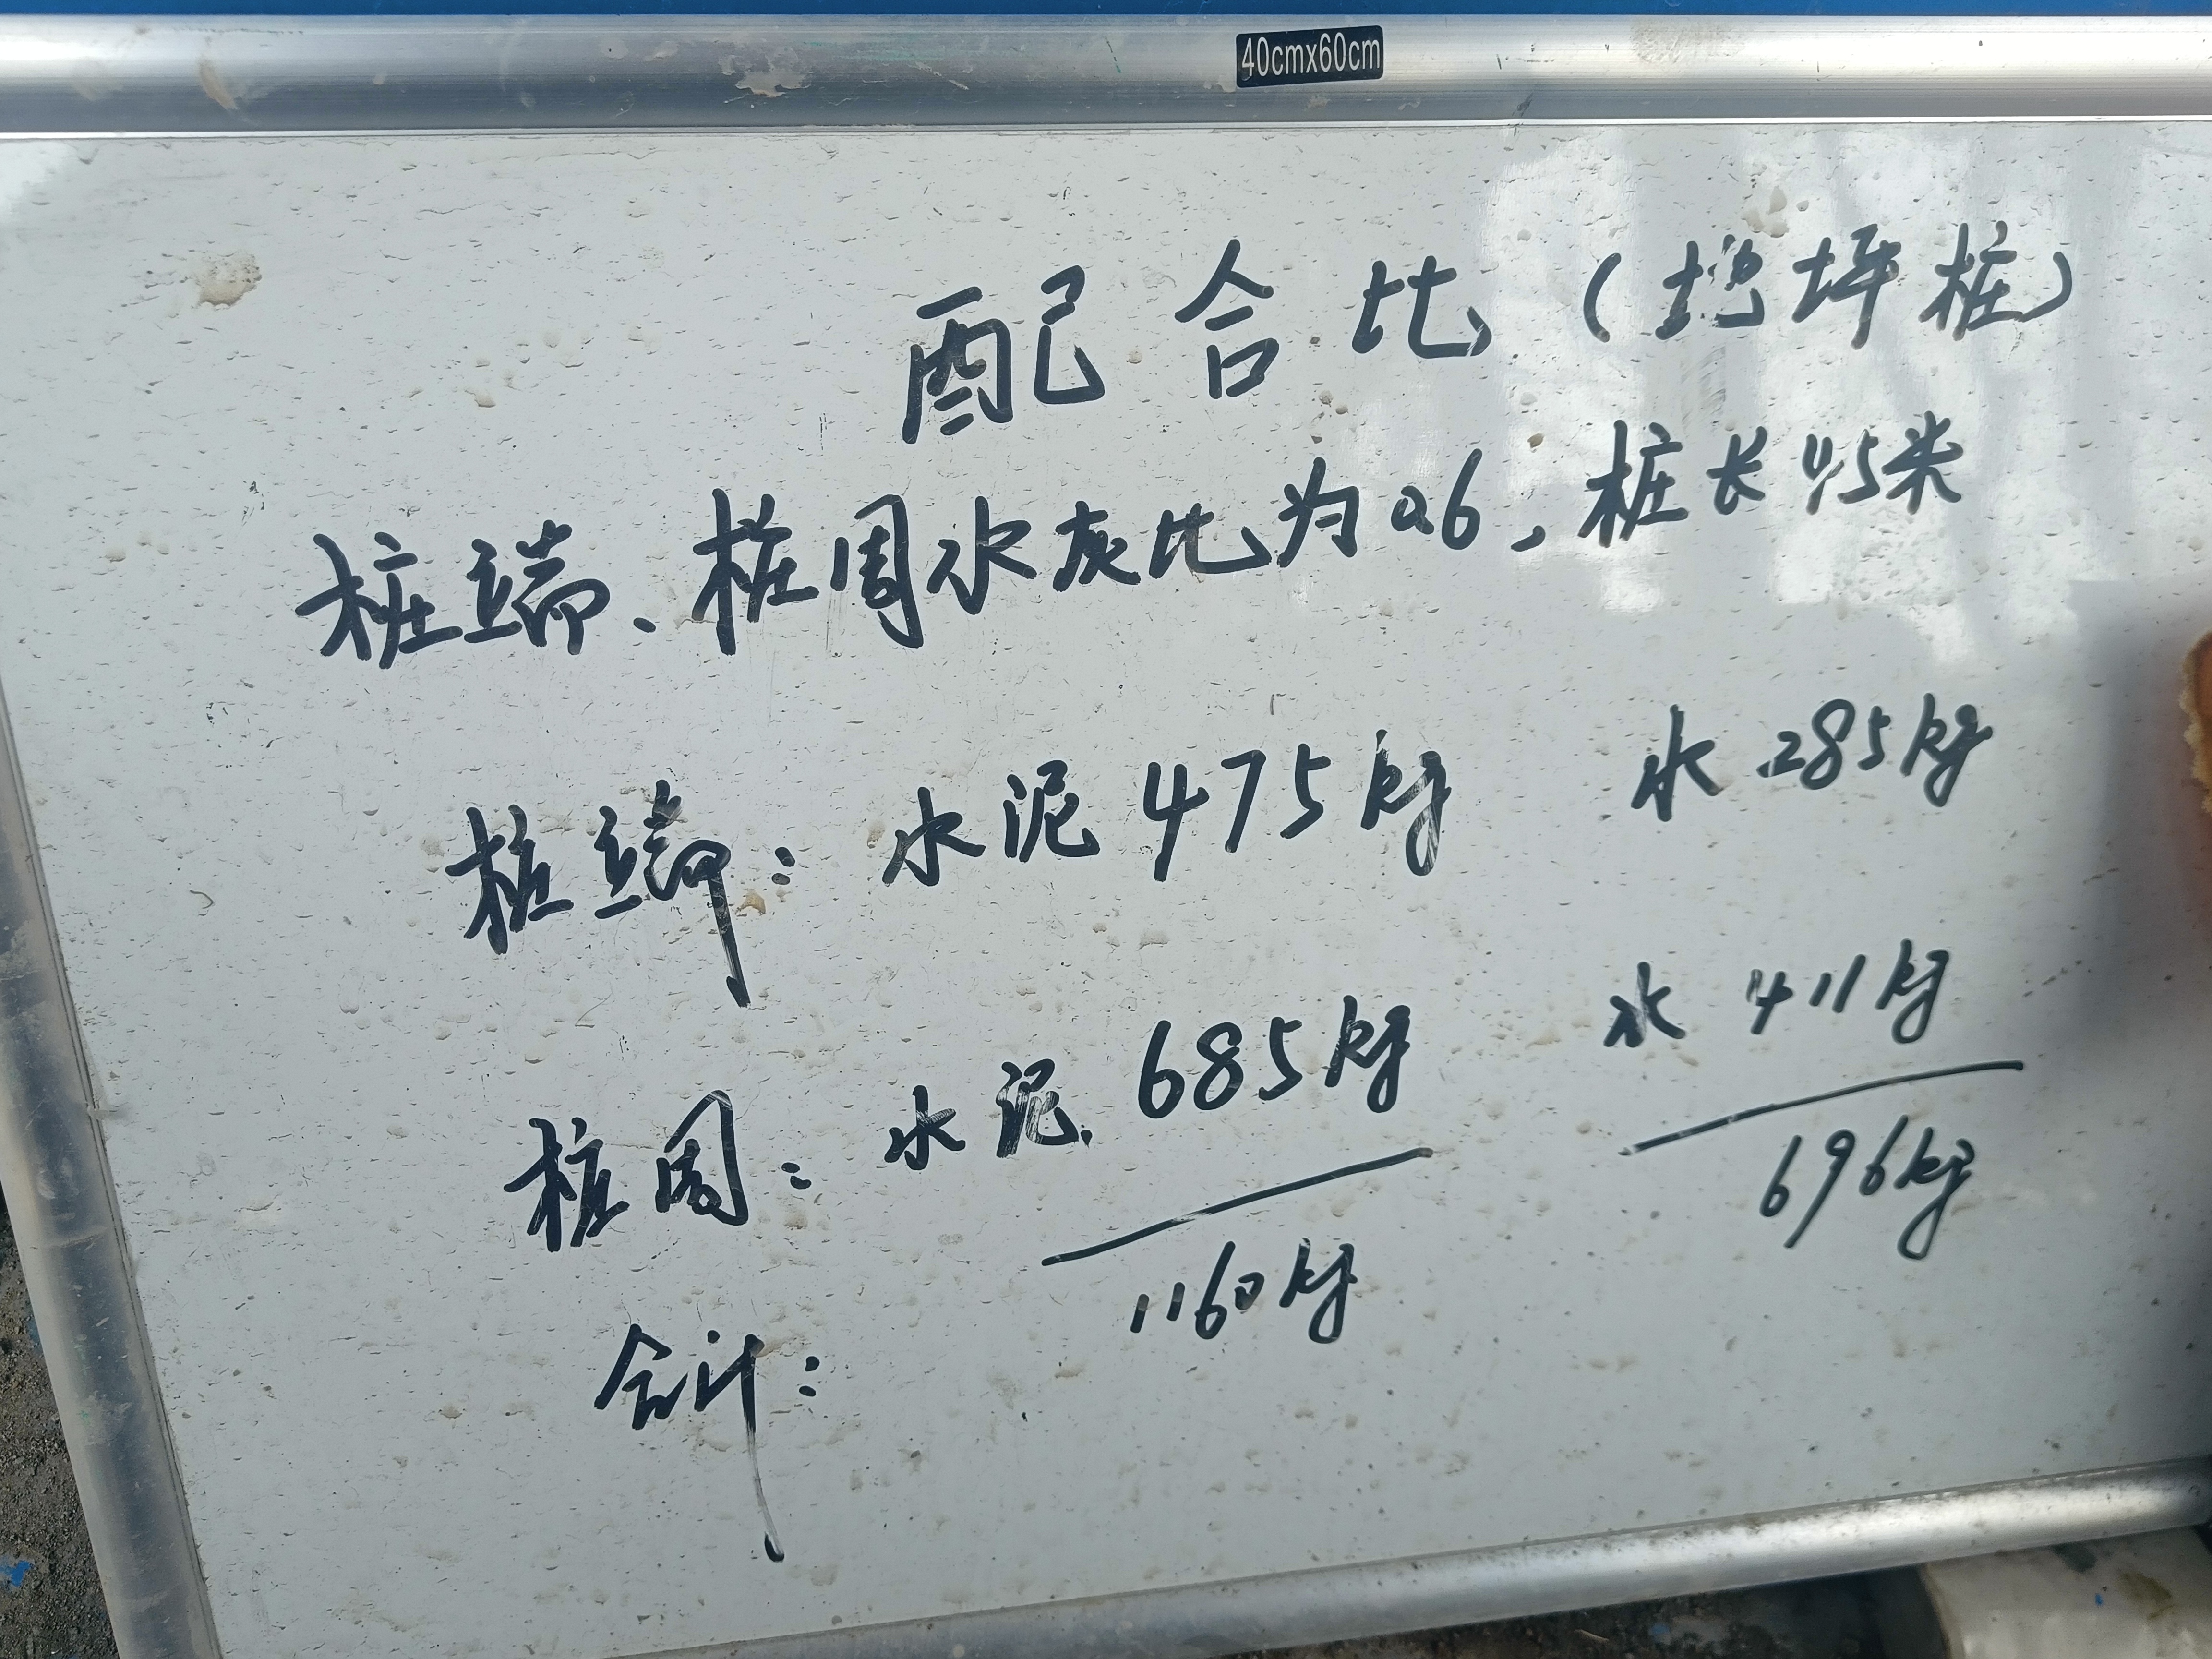 40cmx60cm
配合比（地坪桩）
桩端、桩周水灰比为0.6，桩长45米
桩端：水泥475kg 水285kg
桩周：水泥685kg 水411kg
合计：1160kg 696kg